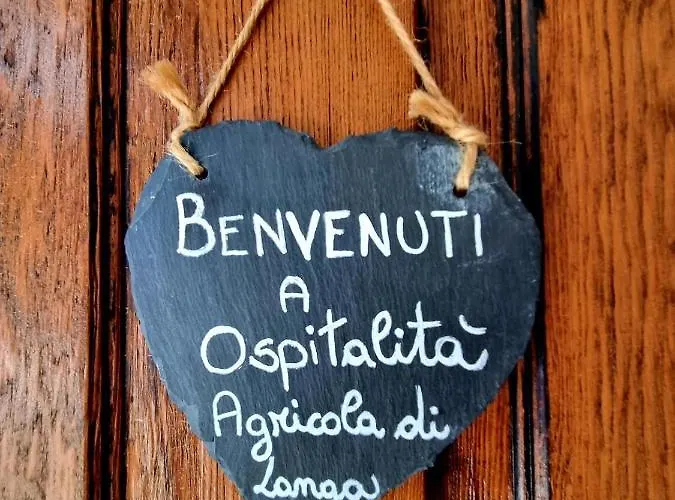 BENVENUTI
A
Ospitalità
Agricola di
Langa